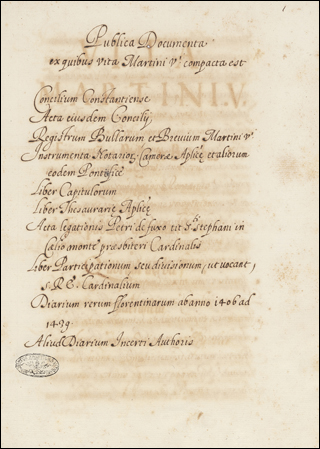 Publica Documenta
ex quibus vita Martini V.i compacta est
Concilium Constantiense
Acta eiusdem Concilij
Registrum Bullarum et Brevium Martini V.i
Instrumenta Notarior. Cameræ Aplicæ et aliorum
eodem Pontifice
Liber Capitulorum
Liber Thesaurariæ Aplicæ
Acta legationis Petri de fuxo tit. S. Stephani in
Cælio monte præsbiteri Cardinalis
Liber Participationum seu divisionum, ut vocant,
S.R.E. Cardinalium
Diarium rerum florentinarum ab anno 1406 ad
1439
Aliud Diarium Incerti Authoris